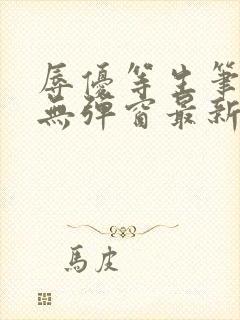 辱優等生筆
無彈窗最新
馬皮